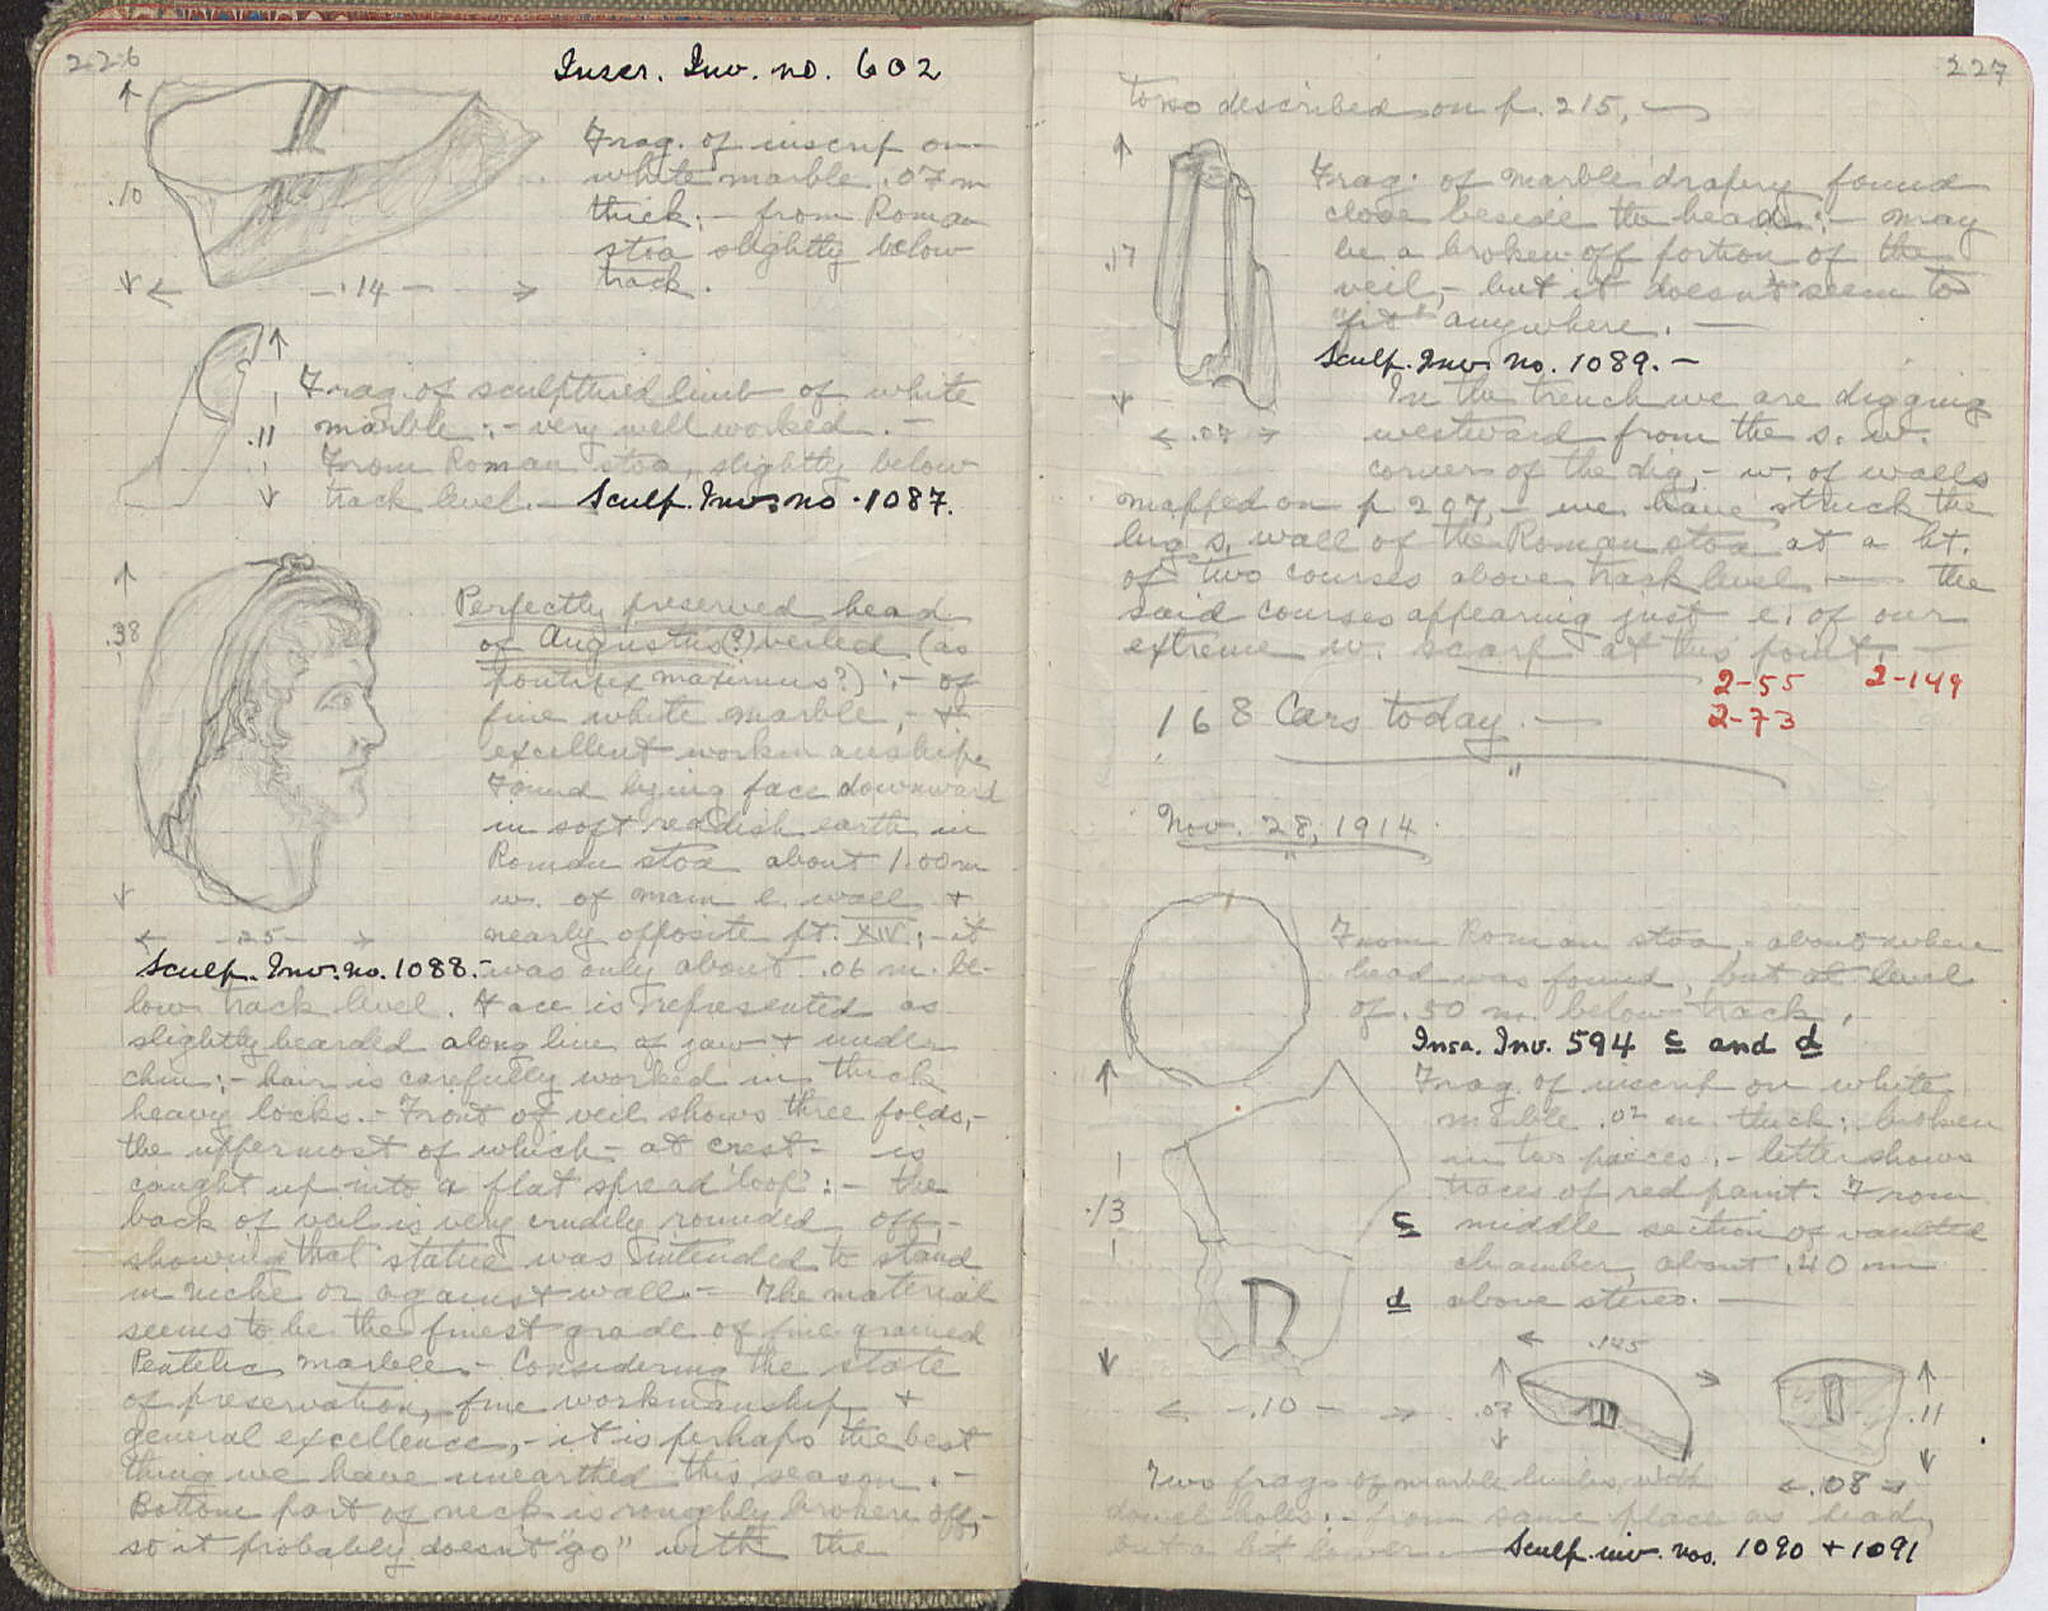 226
Inscr. Inv. no. 602
Frag. of inscrip on
white marble .07 m
thick:- from Roman
stoa slightly below
track.
.10
.14
Frag. of sculptured limb of white
marble:- very well worked.-
From Roman stoa, slightly below
track level.- Sculp. Inv. no. 1087.
.11
.38
Perfectly preserved head
of Augustus(?) veiled (as
pontifex maximus?):- of
fine white marble,- +
excellent workmanship.
Found lying face downward
in soft reddish earth in
Roman stoa about 1.00 m
w. of main e. wall +
nearly opposite pt. XIV:- it
.25
Sculp. Inv. no. 1088.- was only about .06 m. be-
low track level. Face is represented as
slightly bearded along line of jaw + under
chin:- hair is carefully worked in thick
heavy locks.- Front of veil shows three folds,-
the uppermost of which - at crest - is
caught up into a flat spread 'loop':- the
back of veil is very crudely rounded off,-
showing that statue was intended to stand
in niche or against wall.- The material
seems to be the finest grade of fine grained
Pentelic marble.- Considering the state
of preservation, fine workmanship +
general excellence,- it is perhaps the best
thing we have unearthed this season.-
Bottom part of neck is roughly broken off,-
so it probably doesn't "go" with the
227
torso described on p. 215,-
.17
Frag. of marble drapery found
close beside the head:- may
be a broken off portion of the
veil,- but it doesn't seem to
"fit" anywhere.-
Sculp. Inv. no. 1089.-
.07
In the trench we are digging
westward from the s. w.
corner of the dig,- w. of walls
mapped on p 207,- we have struck the
big s. wall of the Roman stoa at a ht.
of two courses above track level - the
said courses appearing just e. of our
extreme w. scarp at this point.-
2-55 2-149
2-73
168 Cars today.-
Nov. 28, 1914.
From Roman stoa, about where
head was found, but at level
of .50 m. below track.
Insc. Inv. 594 c and d
Frag. of inscrip on white
marble .02 m. thick: broken
in two pieces.- letter shows
traces of red paint. From
c middle section of vaulted
chamber, about .40 m
d above stereo.-
.13
.10
.145
.07
.11
.08
Two frags of marble limbs with
dowel holes:- from same place as head,
but a bit lower.- Sculp. inv. nos. 1090 + 1091